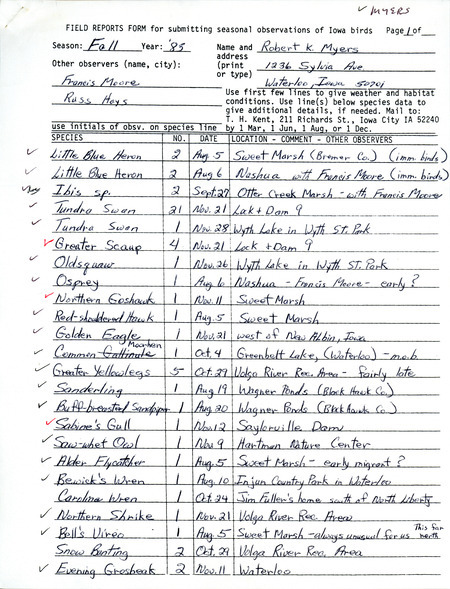 ✓ MYERS
FIELD REPORTS FORM for submitting seasonal observations of Iowa birds Page 1 of
Season: Fall Year: '85 Name and Robert K. Myers
address
Other observers (name, city): (print 1236 Sylvia Ave
or type) Waterloo, Iowa 50701
Francis Moore
Russ Hays
Use first few lines to give weather and habitat
conditions. Use line(s) below species data to
give additional details, if needed. Mail to:
T. H. Kent, 211 Richards St., Iowa City IA 52240
use initials of obsv. on species line by 1 Mar, 1 Jun, 1 Aug, or 1 Dec.
SPECIES NO. DATE LOCATION - COMMENT - OTHER OBSERVERS
✓ Little Blue Heron 2 Aug 5 Sweet Marsh (Bremer Co.) (imm. birds)
✓ Little Blue Heron 2 Aug 6 Nashua with Francis Moore (imm. birds)
Ibis sp. 2 Sept. 27 Otter Creek Marsh - with Francis Moore
✓ Tundra Swan 21 Nov. 21 Lock + Dam 9
✓ Tundra Swan 1 Nov. 28 Wyth Lake in Wyth St. Park
✓ Greater Scaup 4 Nov. 21 Lock + Dam 9
✓ Oldsquaw 1 Nov. 26 Wyth Lake in Wyth St. Park
✓ Osprey 1 Aug 10 Nashua - Francis Moore - early?
✓ Northern Goshawk 1 Nov. 11 Sweet Marsh
✓ Red-shouldered Hawk 1 Aug. 5 Sweet Marsh
✓ Golden Eagle 1 Nov. 21 west of New Albin, Iowa
Moorhen
✓ Common Gallinule 1 Oct. 4 Greenbelt Lake, (Waterloo) - m.ob.
✓ Greater Yellowlegs 5 Oct. 29 Volga River Rec. Area - fairly late
✓ Sanderling 1 Aug 19 Wagner Ponds (Black Hawk Co.)
✓ Buff-breasted Sandpiper 1 Aug. 20 Wagner Ponds (Black Hawk Co.)
✓ Sabine's Gull 1 Nov. 12 Saylorville Dam
✓ Saw-whet Owl 1 Nov 9 Hartman Nature Center
✓ Alder Flycatcher 1 Aug. 5 Sweet Marsh - early migrant?
✓ Bewick's Wren 1 Aug. 10 Injun Country Park in Waterloo
Carolina Wren 1 Oct 24 Jim Fuller's home south of North Liberty
✓ Northern Shrike 1 Nov. 21 Volga River Rec. Area
This far
✓ Bell's Vireo 1 Aug. 5 Sweet Marsh - always unusual for us north
Snow Bunting 2 Oct. 29 Volga River Rec. Area
✓ Evening Grosbeak 2 Nov. 11 Waterloo